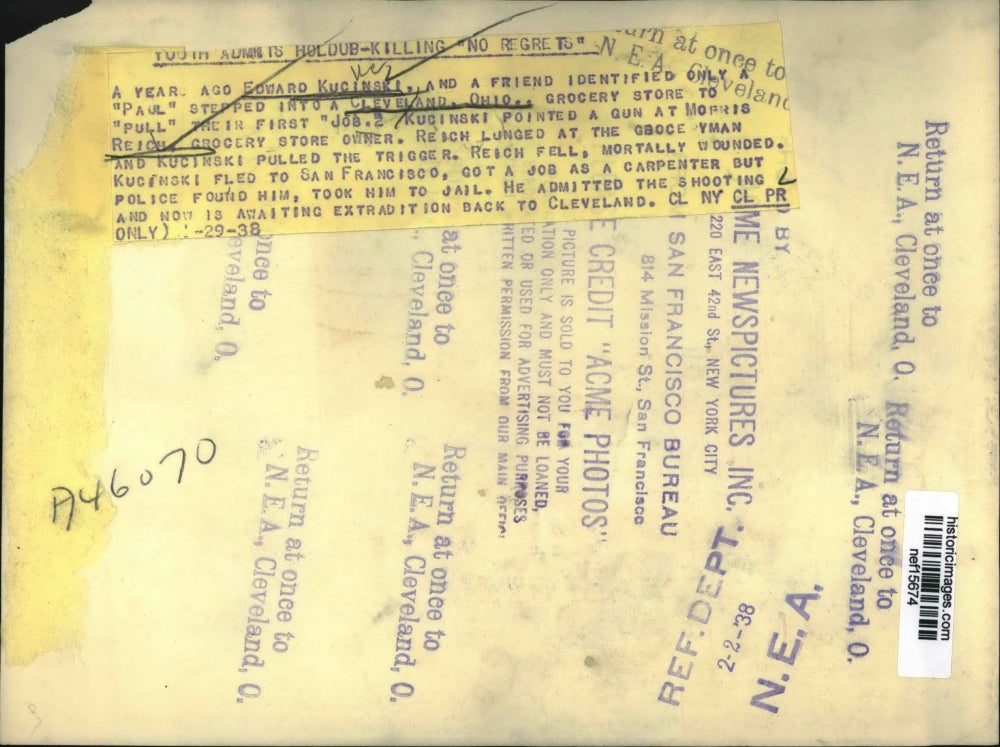 YOUTH ADMITS HOLDUB-KILLING "NO REGRETS"
A YEAR AGO EDWARD KUCINSKI, AND A FRIEND IDENTIFIED ONLY A
"PAUL" STEPPED INTO A CLEVELAND, OHIO., GROCERY STORE TO
"PULL" THEIR FIRST "JOB." KUCINSKI POINTED A GUN AT MORRIS
REICH, GROCERY STORE OWNER. REICH LUNGED AT THE GROCE YMAN
AND KUCINSKI PULLED THE TRIGGER. REICH FELL, MORTALLY WOUNDED.
KUCINSKI FLED TO SAN FRANCISCO, GOT A JOB AS A CARPENTER BUT
POLICE FOUND HIM, TOOK HIM TO JAIL. HE ADMITTED THE SHOOTING
AND NOW IS AWAITING EXTRADITION BACK TO CLEVELAND. CL NY CL PR
ONLY) -29-38
urn at once to
N. E. A. Cleveland
D BY
ME NEWSPICTURES INC.
220 EAST 42nd St., NEW YORK CITY
SAN FRANCISCO BUREAU
814 Mission St., San Francisco
E CREDIT "ACME PHOTOS"
PICTURE IS SOLD TO YOU FOR YOUR
ATION ONLY AND MUST NOT BE LOANED,
ED OR USED FOR ADVERTISING PURPOSES
RITTEN PERMISSION FROM OUR MAIN OFFICE
at once to
., Cleveland, O.
once to
eveland, O.
Return at once to
N. E. A., Cleveland, O.
Return at once to
N. E. A., Cleveland, O.
Return at once to
N. E. A., Cleveland, O.
Return at once to
N. E. A., Cleveland, O.
REF. DEPT.
2-2-38
N.E.A.
A46070
historicimages.com
nef15674